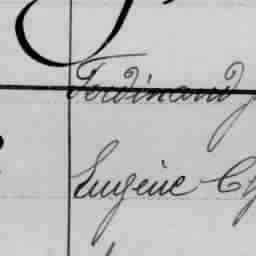 Ferdinand
Eugène